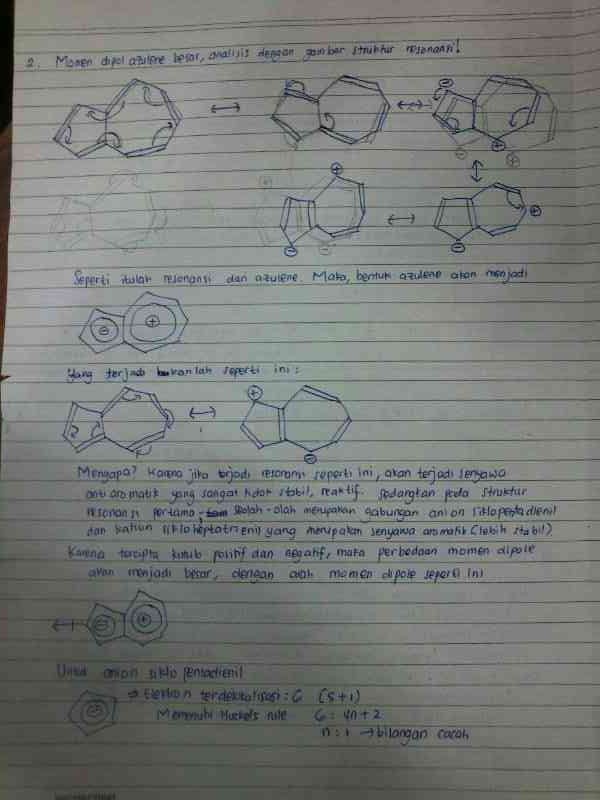 2. Momen dipol azulene besar, analisis dengan gambar struktur resonansi!
Seperti itulah resonansi dari azulene. Maka, bentuk azulene akan menjadi
Yang terjadi bukanlah seperti ini:
Mengapa? Karena jika terjadi resonansi seperti ini, akan terjadi senyawa
anti aromatik yang sangat tidak stabil, reaktif. Sedangkan pada struktur
resonansi pertama, seolah-olah merupakan gabungan anion siklopentadienil
dan kation sikloheptatrienil yang merupakan senyawa aromatik (lebih stabil)
Karena tercipta kutub positif dan negatif, maka perbedaan momen dipole
akan menjadi besar, dengan arah momen dipole seperti ini
Untuk anion siklopentadienil
→ Elektron terdelokalisasi: 6 (5+1)
Memenuhi Huckel's rule 6: 4n+2
n: 1 → bilangan cacah